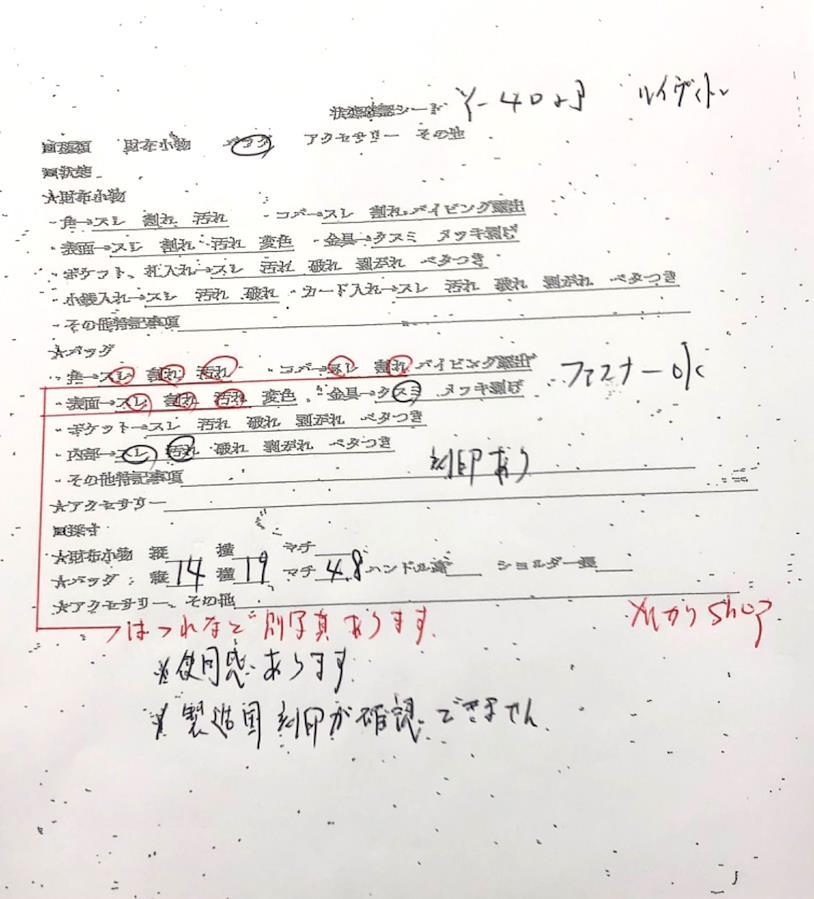 状態確認シート ルイヴィトン
■種類 財布小物 バッグ アクセサリー その他
■状態
★財布小物
・角→スレ 割れ 汚れ ・コバ→スレ 割れ パイピング露出
・表面→スレ 割れ 汚れ 変色 ・金具→クスミ メッキ剥げ
・ポケット、札入れ→スレ 汚れ 破れ 剥がれ ベタつき
・小銭入れ→スレ 汚れ 破れ ・カード入れ→スレ 汚れ 破れ 剥がれ ベタつき
・その他特記事項
★バッグ
・角→スレ 割れ 汚れ ・コバ→スレ 割れ パイピング露出
ファスナーok
・表面→スレ 割れ 汚れ 変色 ・金具→クスミ メッキ剥げ
・ポケット→スレ 汚れ 破れ 剥がれ ベタつき
・内部→スレ 汚れ 破れ 剥がれ ベタつき
・その他特記事項 刻印あり
★アクセサリー
■採寸
★財布小物 縦 横 マチ
★バッグ 縦 14 横 19 マチ 4.8 ハンドル高 ショルダー長
★アクセサリー、その他
ほつれなど別写真あります
メルカリshop
※使用感あります
※製造国刻印が確認できません